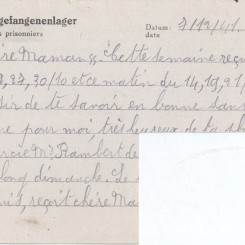 gefangenenlager Datum: 7/12/41
s prisonniers date:
ère Maman. Cette semaine reçu
, 37, 30/10 et ce matin du 14, 19, 91
sir de te savoir en bonne san
ne pour moi, très heureux de ta
rcie Mr Rambert de
long dimanche. Le
is, reçoit chère Ma